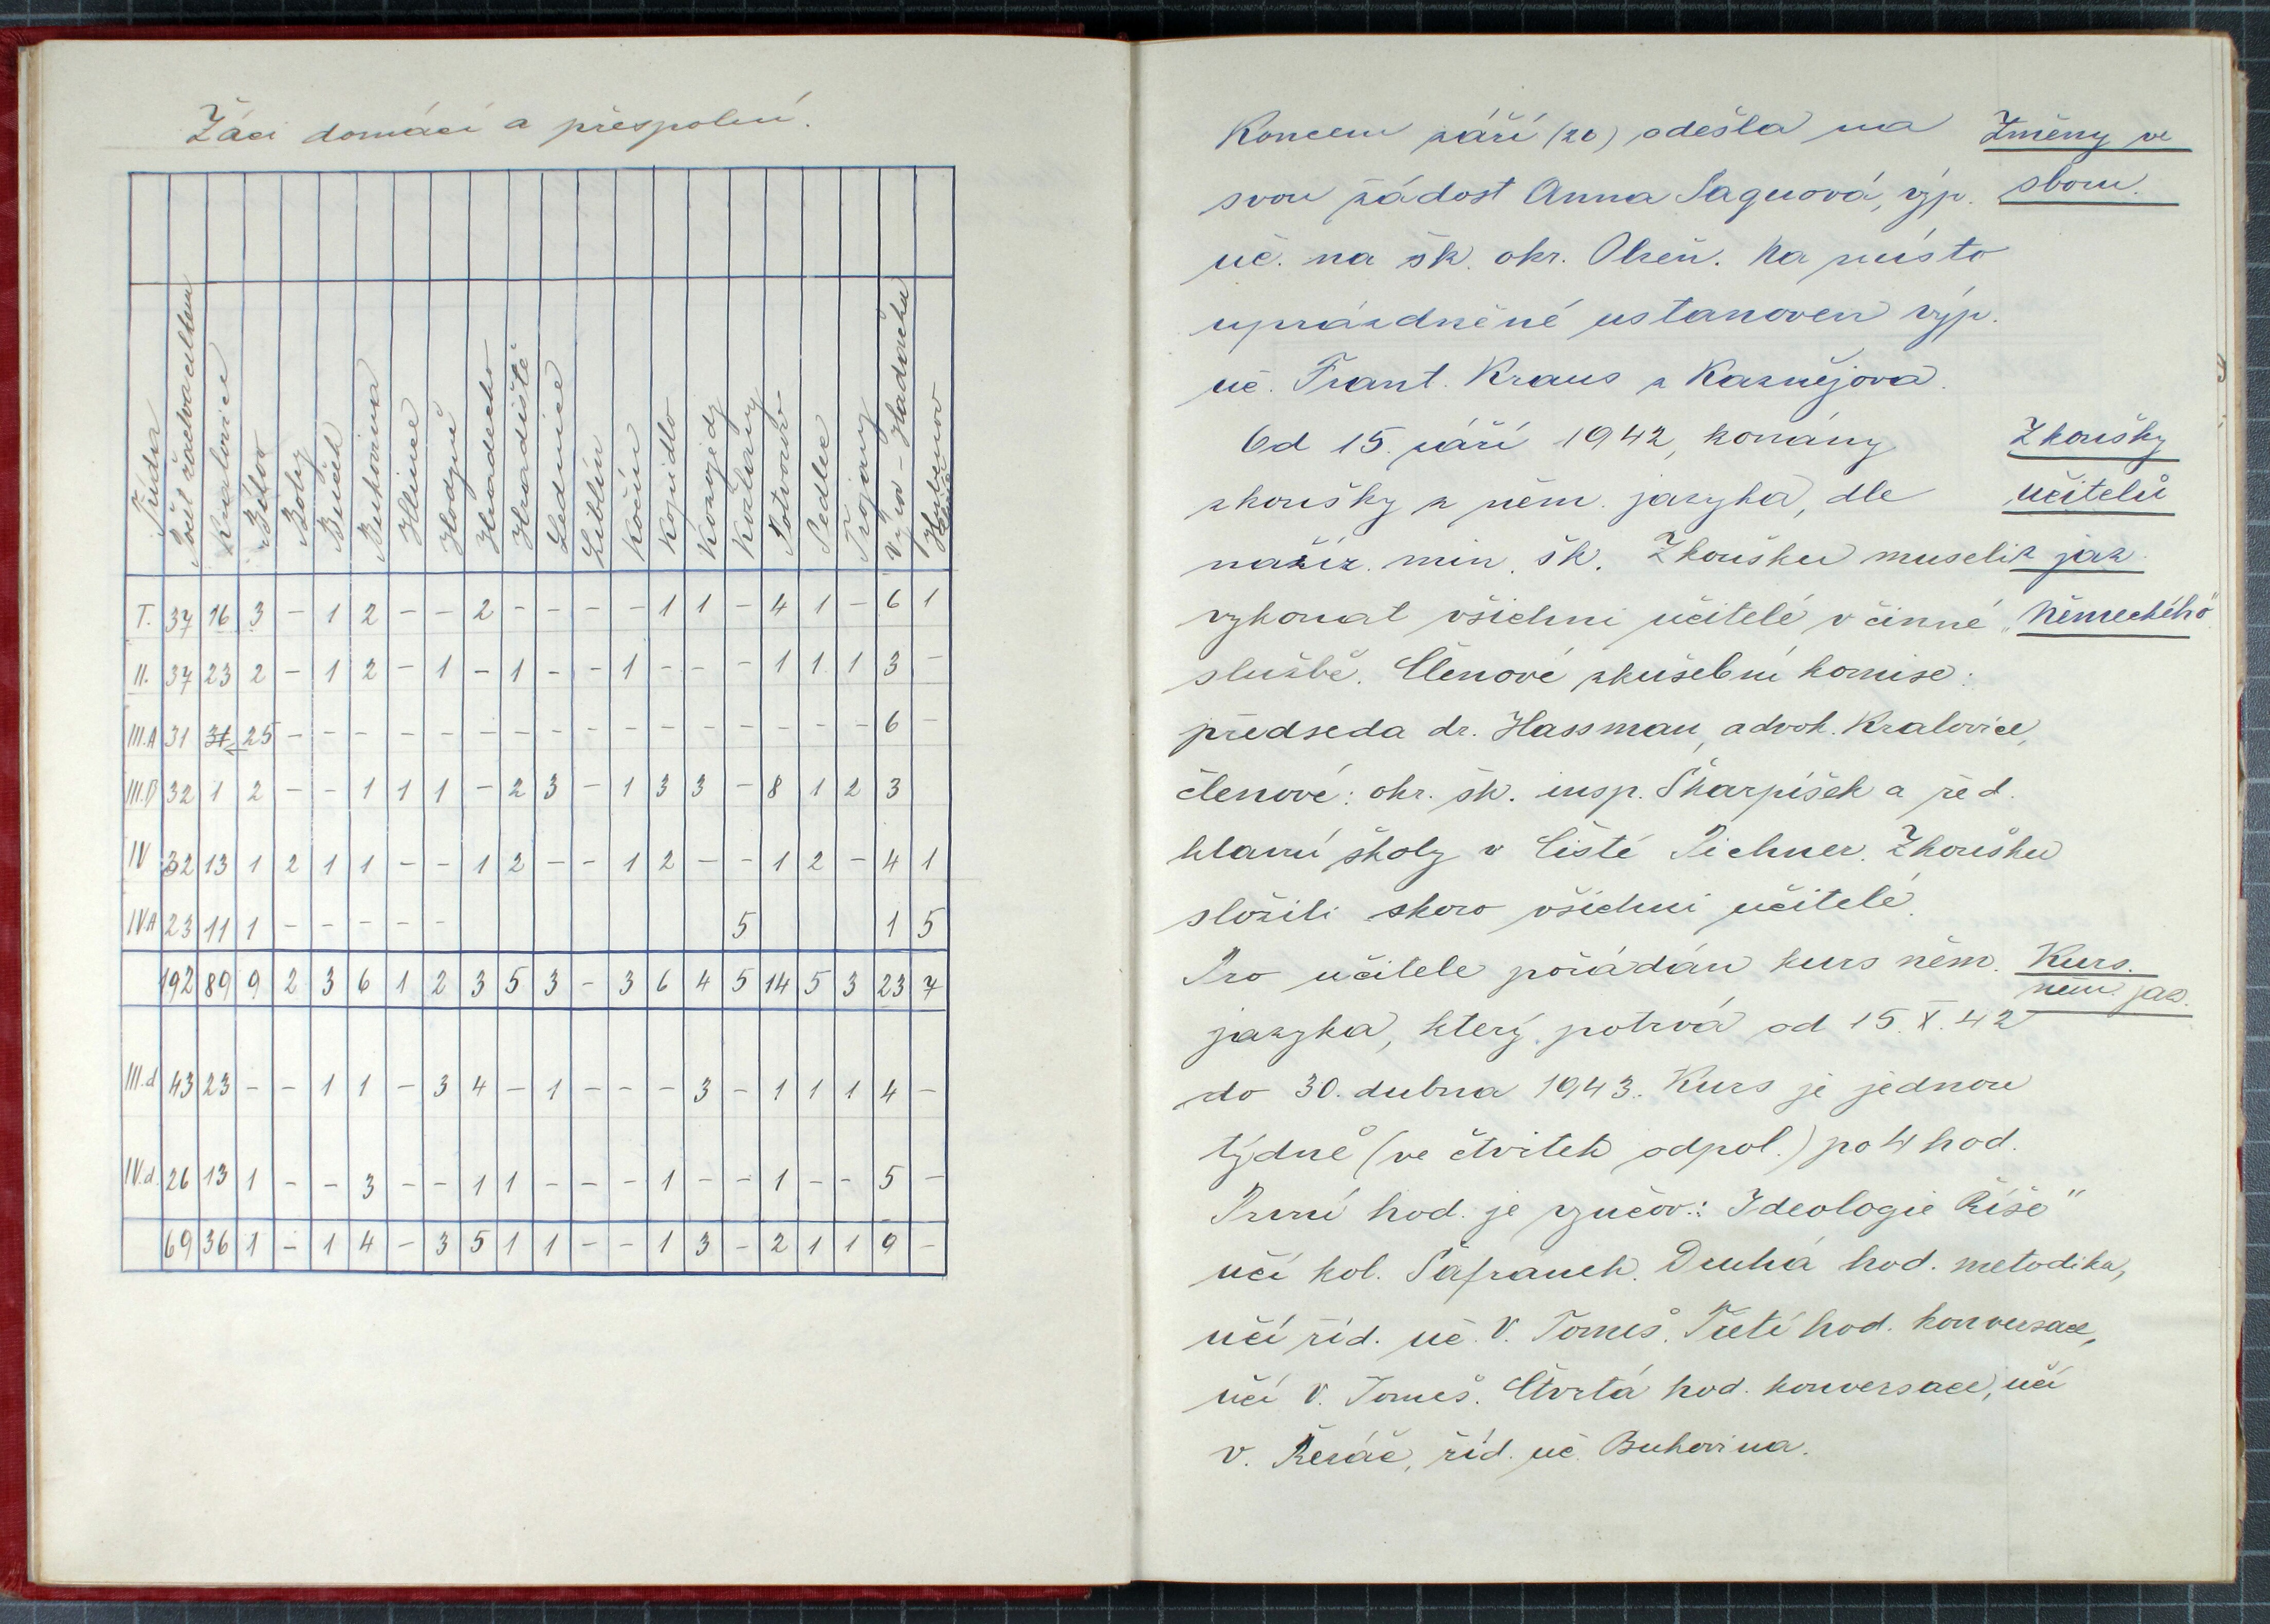 Žáci domácí a přespolní.
Třída Počet žactva celkem Kralovice Bílov Boby Buček Bukovina Hlince Hodyně Hradecko Hradiště Lednice Liblín Kočín Kopidlo Koryjedy Kožlany Potvorov Sedlec Trojany Výrov - Hadačka
I. 37 16 3 - 1 2 - - 2 - - - - 1 1 - 4 1 - 6 1
II. 37 23 2 - 1 2 - 1 - 1 - - 1 - - - 1 1 1 3 -
III.A 31 25 - - - - - - - - - - - - - - - - 6 -
III.B 32 1 2 - - 1 1 1 - 2 3 - 1 3 3 - 8 1 2 3
IV 32 13 1 2 1 1 - - 1 2 - - 1 2 - - 1 2 - 4 1
IV.A 23 11 1 - - - - - 5 1 5
192 89 9 2 3 6 1 2 3 5 3 - 3 6 4 5 14 5 3 23 7
III.d 43 23 - - 1 1 - 3 4 - 1 - - - 3 - 1 1 1 4 -
IV.d. 26 13 1 - - 3 - - 1 1 - - - 1 - - 1 - - 5 -
69 36 1 - 1 4 - 3 5 1 1 - - 1 3 - 2 1 1 9 -
Koncem září (20) odešla na
svou žádost Anna Saguová, výp.
uč. na šk. okr. Plzeň. Na místo
uprázdněné ustanoven výp.
uč. Frant. Kraus z Kaznějova.
Změny ve
sboru.
Od 15. září 1942, konány
zkoušky z něm. jazyka, dle
naříz. min. šk. Zkoušku museli
vykonat všichni učitelé v činné
službě. Členové zkušební komise:
předseda dr. Hassman, advok. Kralovice,
členové: okr. šk. insp. Škarpíšek a řed.
hlavní školy v Čisté Pichner. Zkoušku
složili skoro všichni učitelé.
Zkoušky
učitelů
z jaz.
"Německého"
Pro učitele pořádán kurs něm.
jazyka, který potrvá od 15. X. 42
do 30. dubna 1943. Kurs je jednou
týdně (ve čtvrtek odpol.) po 4 hod.
První hod. je vyučov.: Ideologie Říše"
učí kol. Šafránek. Druhá hod. metodika,
učí říd. uč. V. Tomeš. Třetí hod. konversace,
učí V. Tomeš. Čtvrtá hod. konversace, učí
V. Řezáč, říd. uč. Bukovina.
Kurs.
něm. jaz.